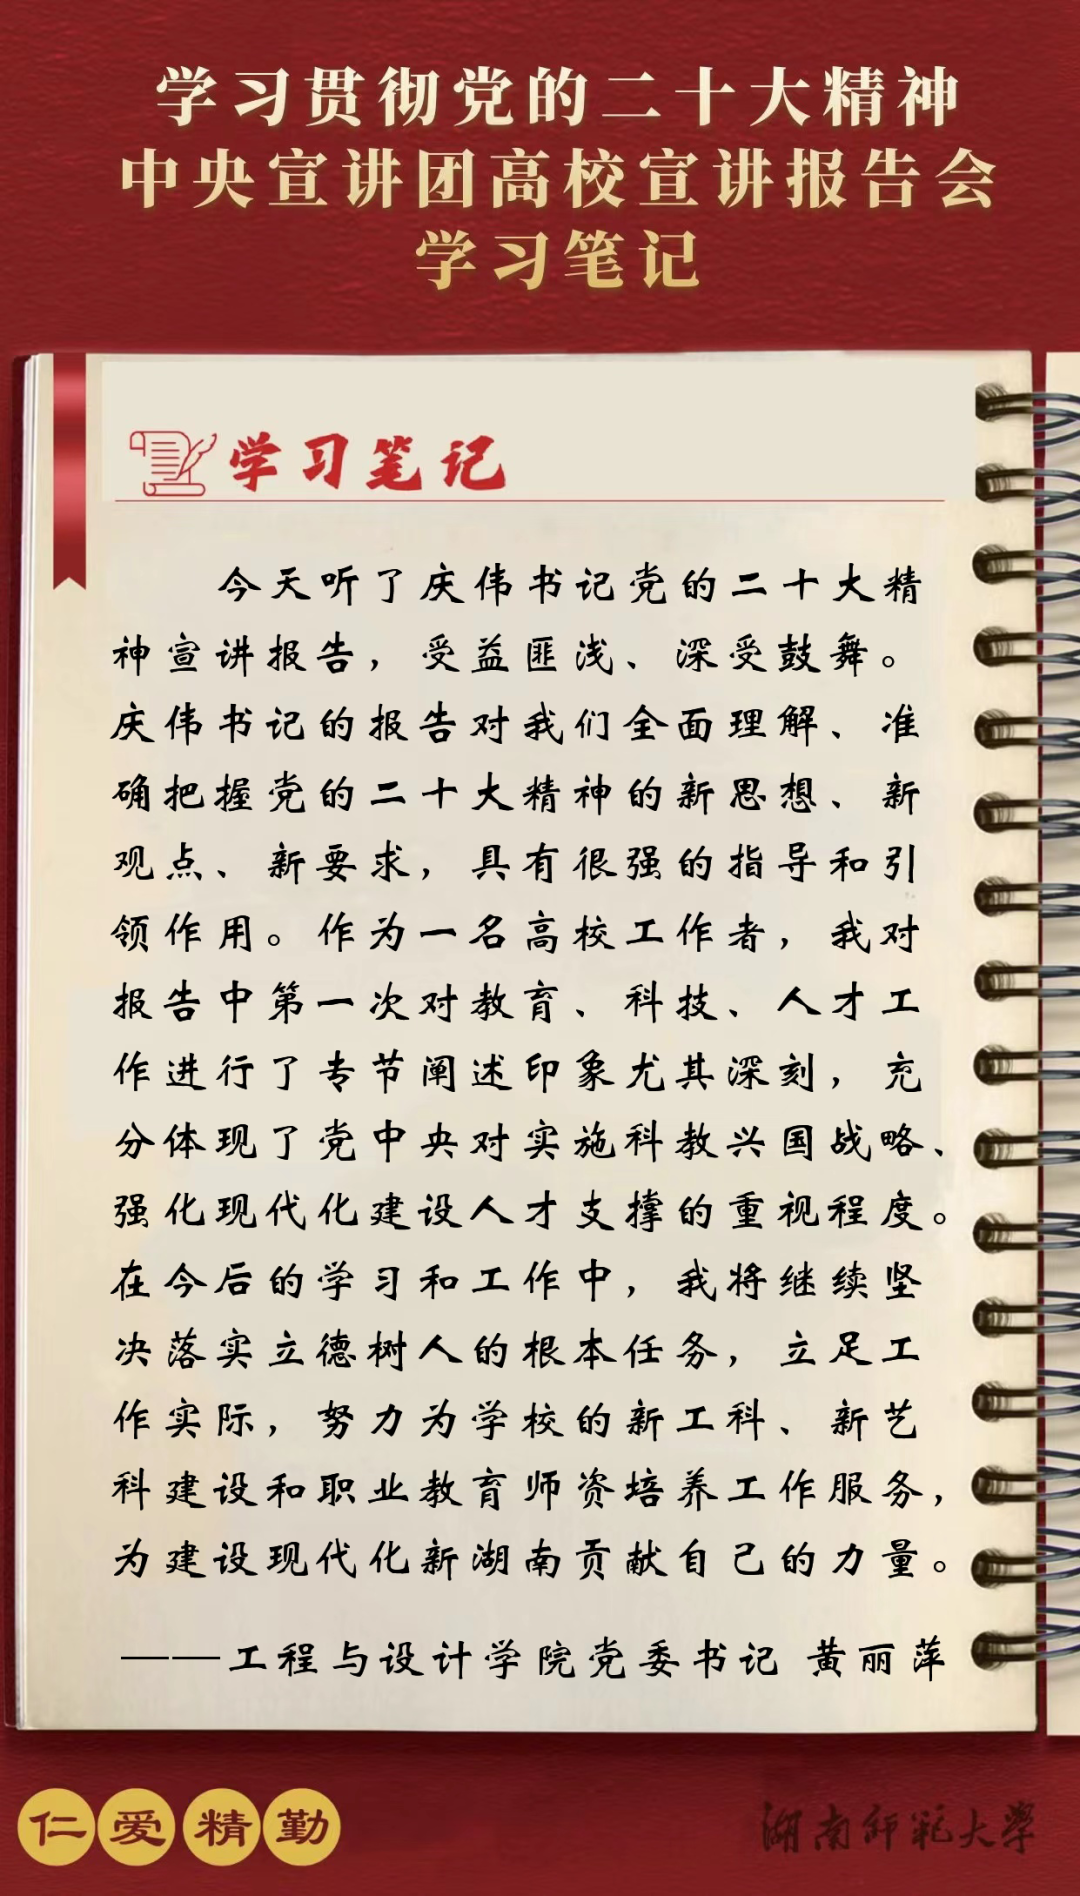 学习贯彻党的二十大精神
中央宣讲团高校宣讲报告会
学习笔记
学习笔记
今天听了庆伟书记党的二十大精
神宣讲报告，受益匪浅、深受鼓舞。
庆伟书记的报告对我们全面理解、准
确把握党的二十大精神的新思想、新
观点、新要求，具有很强的指导和引
领作用。作为一名高校工作者，我对
报告中第一次对教育、科技、人才工
作进行了专节阐述印象尤其深刻，充
分体现了党中央对实施科教兴国战略、
强化现代化建设人才支撑的重视程度。
在今后的学习和工作中，我将继续坚
决落实立德树人的根本任务，立足工
作实际，努力为学校的新工科、新艺
科建设和职业教育师资培养工作服务，
为建设现代化新湖南贡献自己的力量。
——工程与设计学院党委书记 黄丽萍
仁爱精勤
湖南师范大学